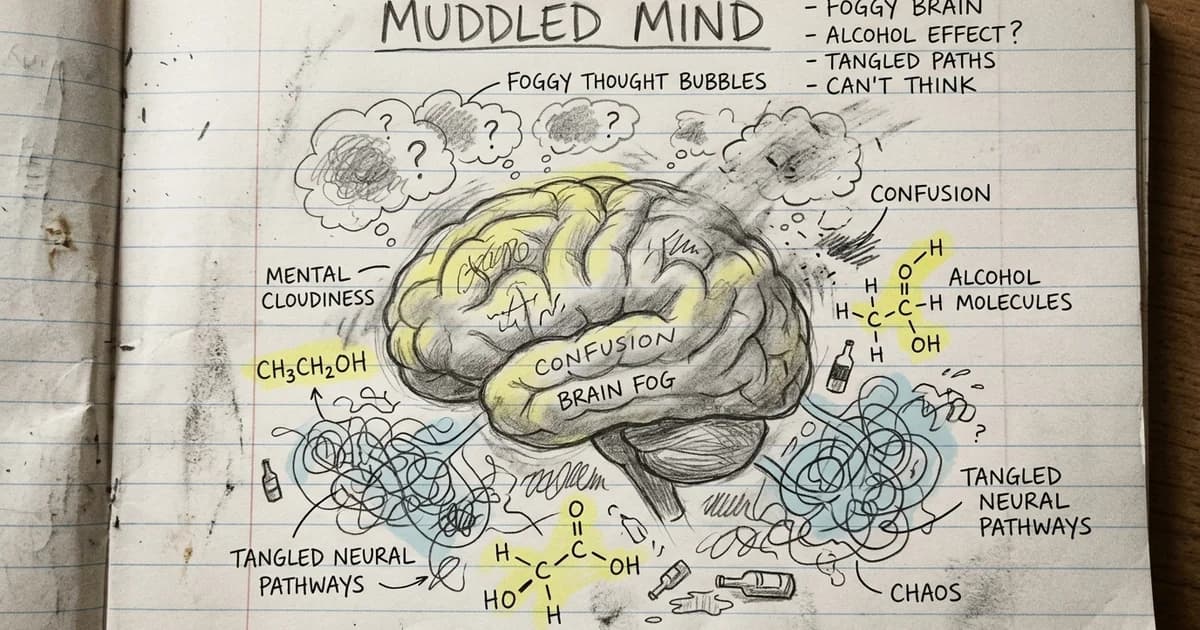 MUDDLED MIND
- FOGGY BRAIN
- ALCOHOL EFFECT?
- TANGLED PATHS
- CAN'T THINK
FOGGY THOUGHT BUBBLES
? ? ? ?
CONFUSION
MENTAL
CLOUDINESS
ALCOHOL
MOLECULES
H
O
H
H C C H
H
OH
CH₃CH₂OH
CONFUSION
BRAIN FOG
?
TANGLED
NEURAL
PATHWAYS
TANGLED NEURAL
PATHWAYS
O
H
C
C
OH
HO
H
CHAOS